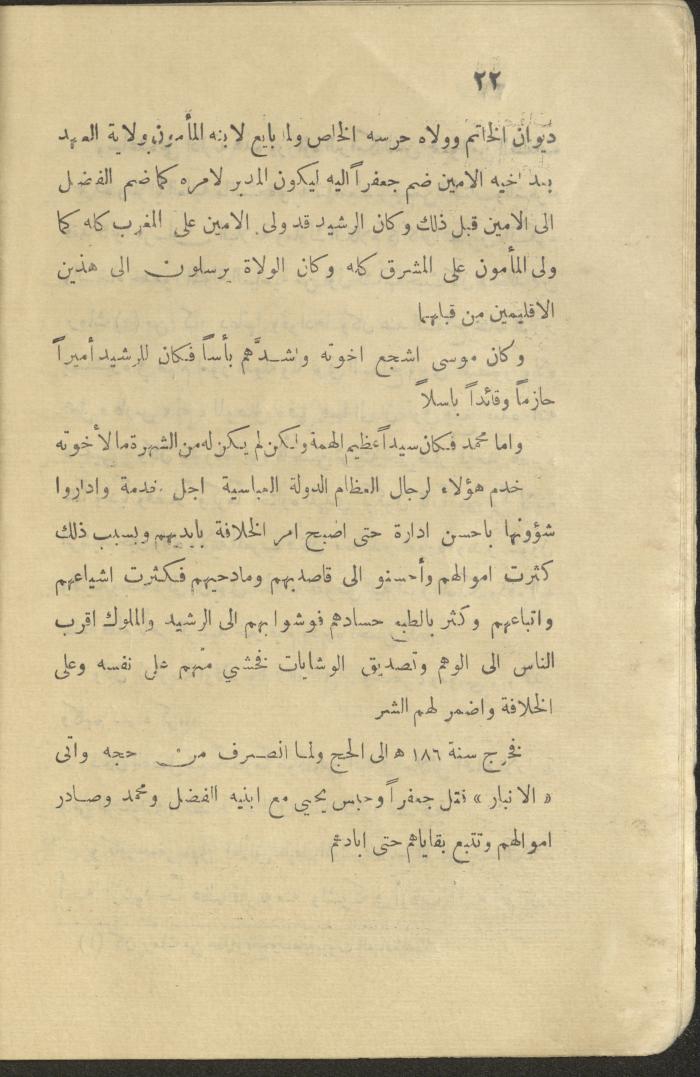 ٢٢
ديوان الخاتم وولاه حرسه الخاص ولما بايع لابنه المأمون بولاية العهد
بعد اخيه الامين ضم جعفراً اليه ليكون المدبر لامره كما ضم الفضل
الى الامين قبل ذلك وكان الرشيد قد ولى الامين على المغرب كله كما
ولى المأمون على المشرق كله وكان الولاة يرسلون الى هذين
الاقليمين من قبلهما
وكان موسى اشجع اخوته واشدَّهم بأساً فكان للرشيد أميراً
حازماً وقائداً باسلاً
واما محمد فكان سيداً عظيم الهمة ولكن لم يكن له من الشهرة ما لأخوته
خدم هؤلاء لرجال العظام الدولة العباسية اجل خدمة واداروا
شؤونها باحسن ادارة حتى اصبح امر الخلافة بايديهم وبسبب ذلك
كثرت اموالهم وأحسنو الى قاصديهم ومادحيهم فكثرت اشياعهم
واتباعهم وكثر بالطبع حسادهم فوشوا بهم الى الرشيد والملوك اقرب
الناس الى الوهم وتصديق الوشايات فخشي منهم على نفسه وعلى
الخلافة واضمر لهم الشر
فخرج سنة ١٨٦ ه الى الحج ولما انصرف من حجه واتى
« الانبار » قتل جعفراً وحبس يحيى مع ابنيه الفضل ومحمد وصادر
اموالهم وتتبع بقاياهم حتى ابادهم